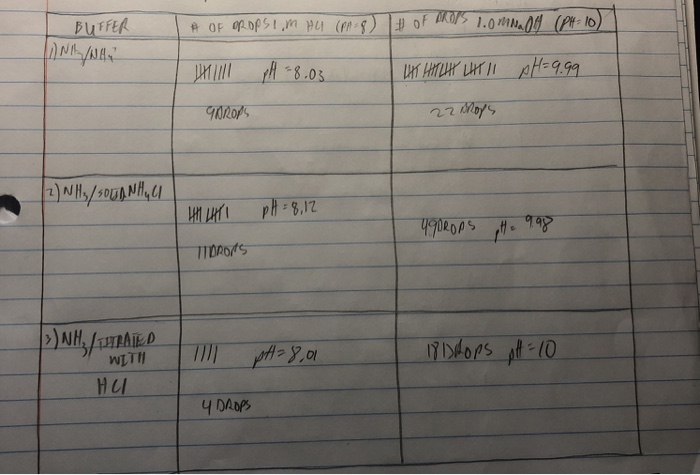 BUFFER
# OF DROPS 1.M HCl (PH=8)
# OF DROPS 1.0M NaOH (PH=10)
1) NH3/NH4+
|||| |||| pH = 8.03
9 DROPS
|||| |||| |||| |||| || pH = 9.99
22 DROPS
2) NH3/SOLID NH4Cl
|||| |||| | pH = 8.12
11 DROPS
49 DROPS pH = 9.98
3) NH3/TITRATED
WITH
HCl
|||| pH = 8.01
4 DROPS
18 DROPS pH = 10